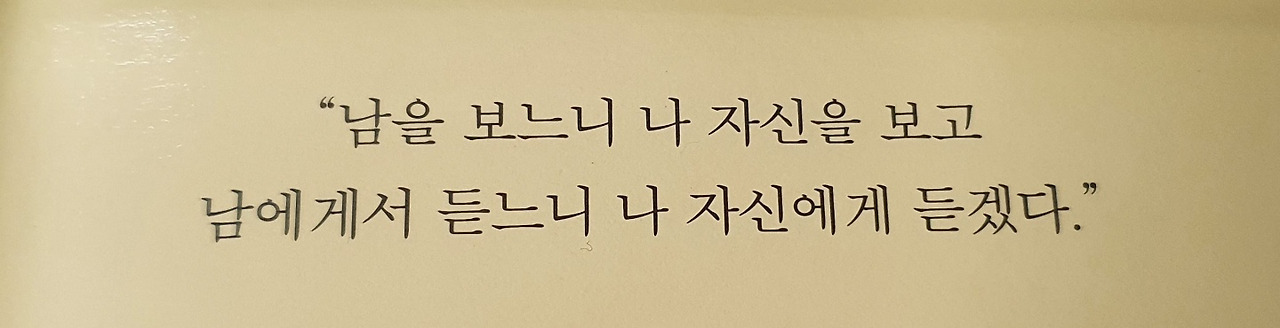 “남을 보느니 나 자신을 보고
남에게서 듣느니 나 자신에게 듣겠다.”